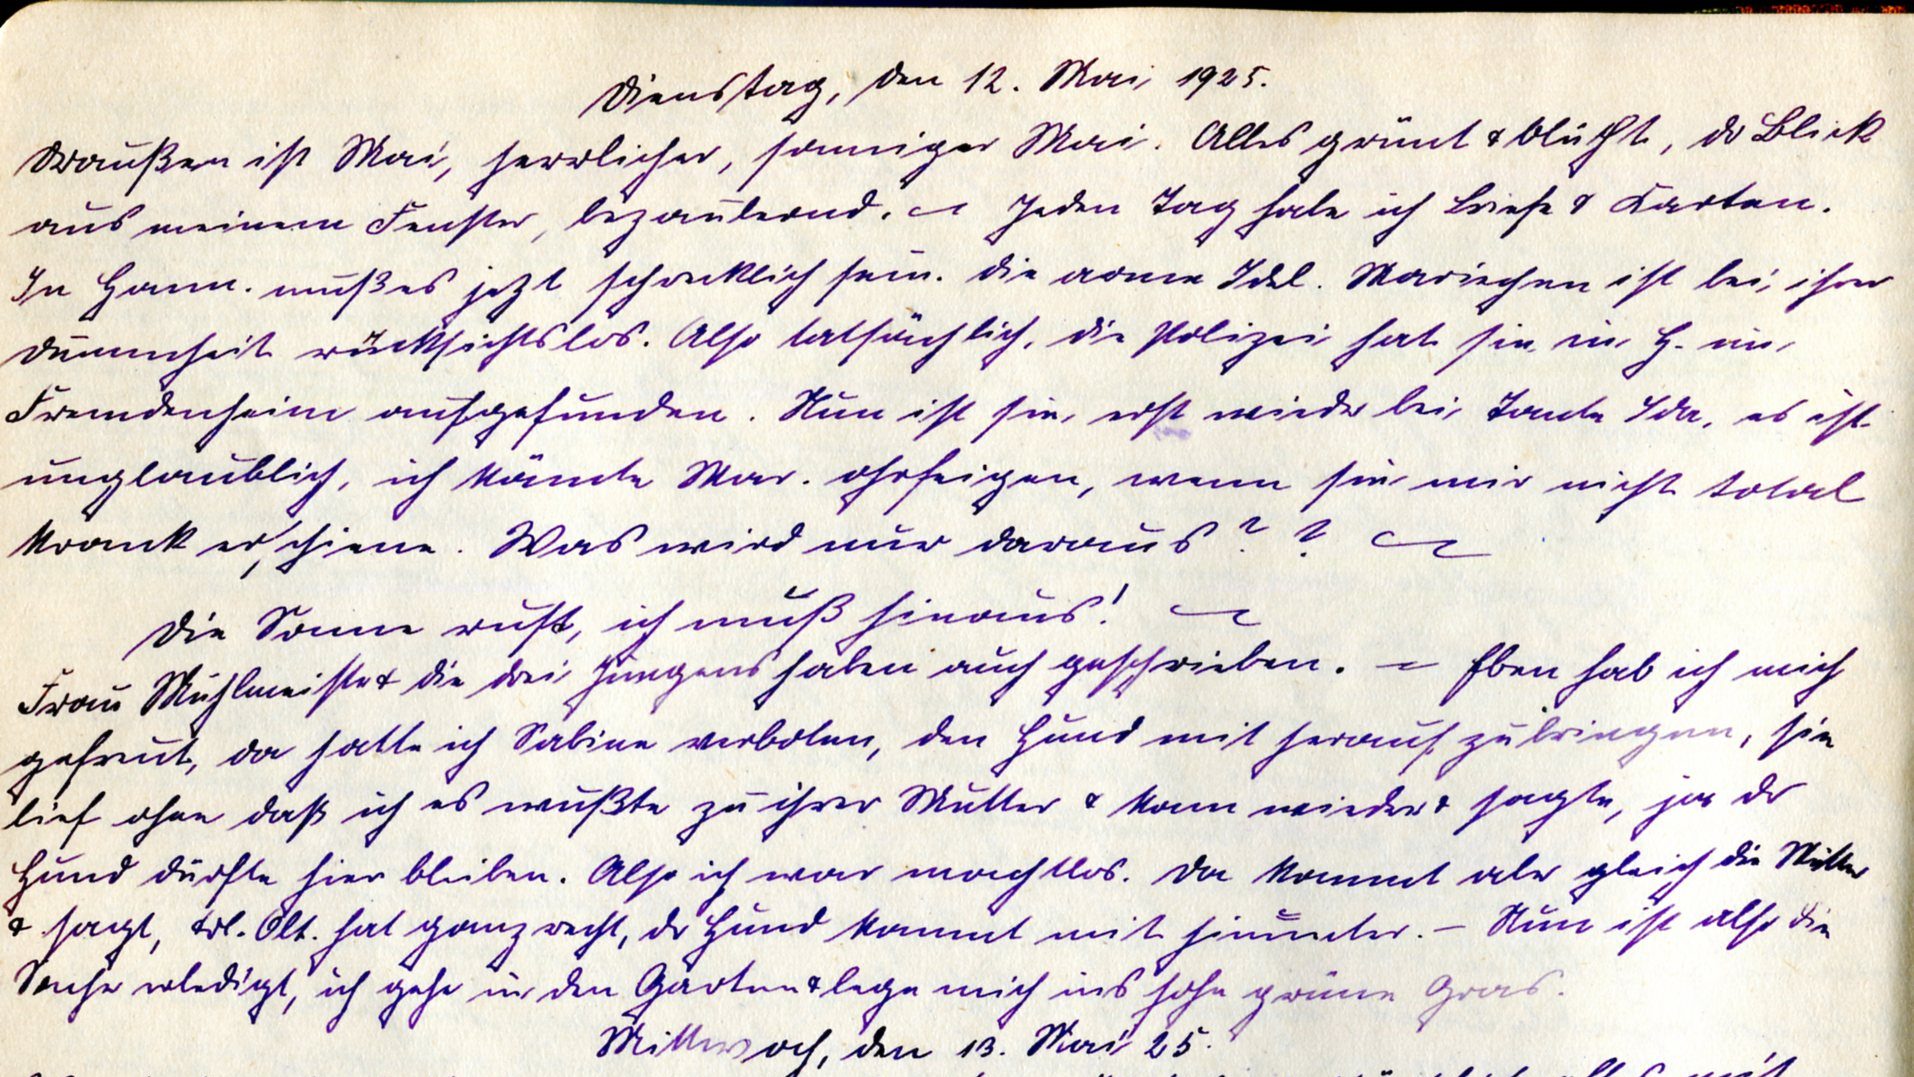 Dienstag, den 12. Mai 1925.
Draußen ist Mai, herrlicher, sonniger Mai. Alles grünt & blüht, der Blick
aus meinem Fenster, bezaubernd. — Jeden Tag habe ich Briefe & Karten.
In Hann. muß es jetzt schrecklich sein. Die arme Idel. Mariechen ist bei ihrer
Dummheit rücksichtslos. Also tatsächlich, die Polizei hat sie in H. im
Fremdenheim aufgefunden. Nun ist sie erst wieder bei Tante Ida, es ist
unglaublich, ich könnte Mar. ohrfeigen, wenn sie mir nicht total
krank erschiene. Was wird nur daraus? ? —
Die Sonne ruft, ich muß hinaus! —
Frau Mühlmeister & die drei Jungens haben auch geschrieben. — Eben hab ich mich
gefreut, da hatte ich Sabine verboten, den Hund mit herauf zu bringen, sie
lief ohne daß ich es wußte zu ihrer Mutter & kam wieder & sagte, ja der
Hund dürfte hier bleiben. Also ich war machtlos. Da kommt aber gleich die Mutter
& sagt, Frl. Olt. hat ganz recht, der Hund kommt mit hinunter. — Nun ist also die
Sache erledigt, ich gehe in den Garten & lege mich ins hohe grüne Gras.
Mittwoch, den 13. Mai 25.